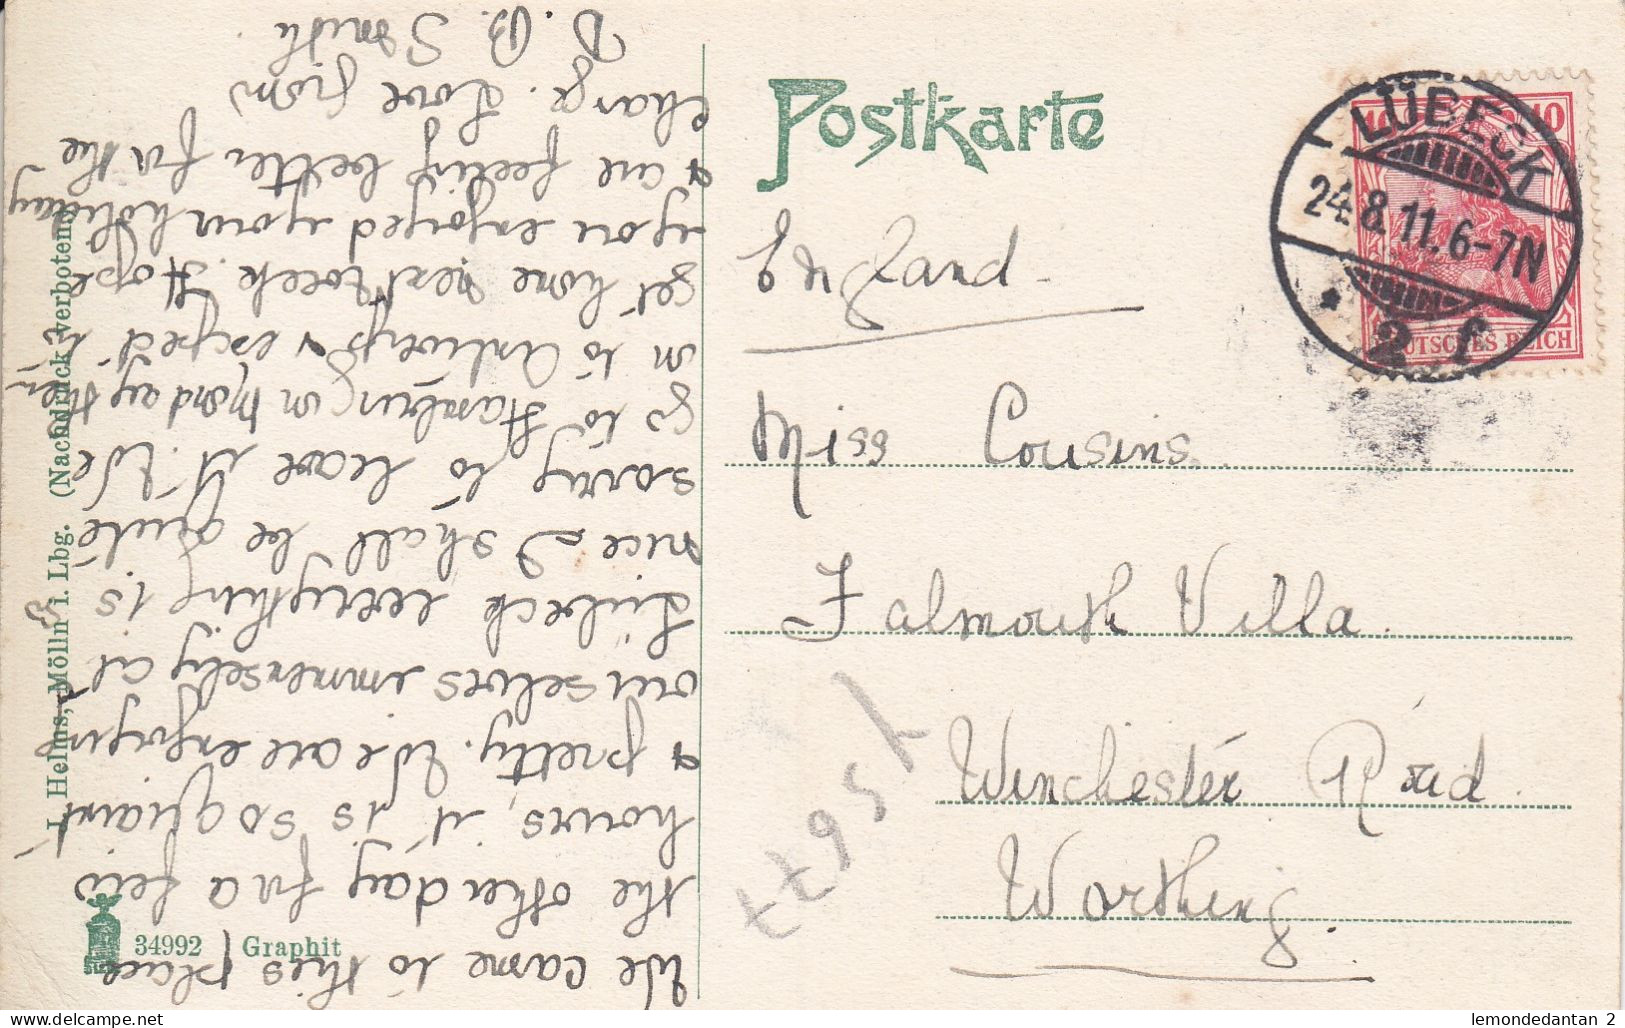 Postkarte
LÜBECK
24.8.11.6-7N
* 2 f
10 10
DEUTSCHES REICH
England
Miss Cousins
Falmouth Villa.
Winchester Road
Worthing.
We came to this place
the other day for a few
hours, it is so quaint
& pretty. We are enjoying
ourselves immensely at
Lübeck everything is
nice I shall be quite
sorry to leave it. We
go to Hamburg on Monday then
on to Antwerp & expect to
get home next week. Hope
you enjoyed your holiday
& are feeling better for the
change. Love from
D. B. Smith
J. Helms, Mölln i. Lbg. (Nachdruck verboten.)
34992 Graphit
lemondedantan 2